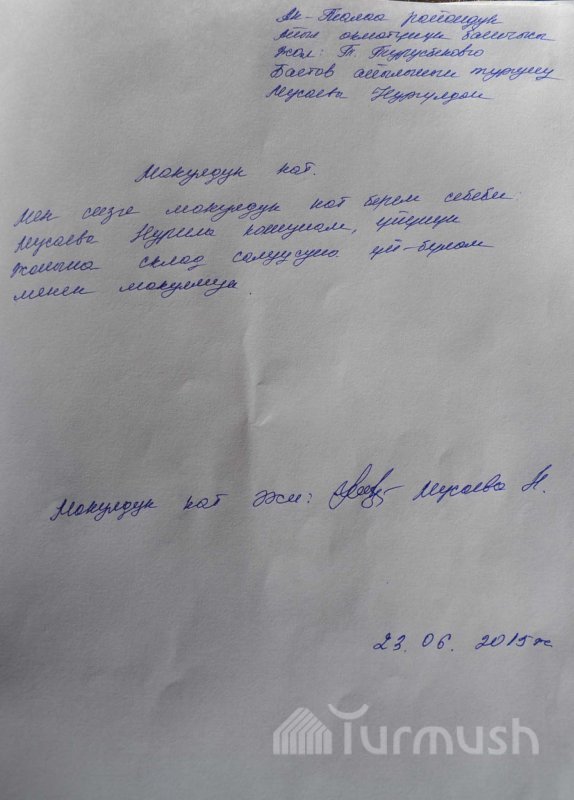 Ак-Талаа райондук
Айыл окмотунун башчысы
жол: Т. Турусбековго
Баетов айылынын тургуну
Мусаева Нургулдан
Макулдук кат.
Мен сизге макулдук кат берем себеби:
Мусаева Нургила кошунам, үйүнүн
жанына склад салуусуна үй-булом
менен макулмун.
Макулдук кат ээси: Мусаева Н.
23. 06. 2015ж
Turmush